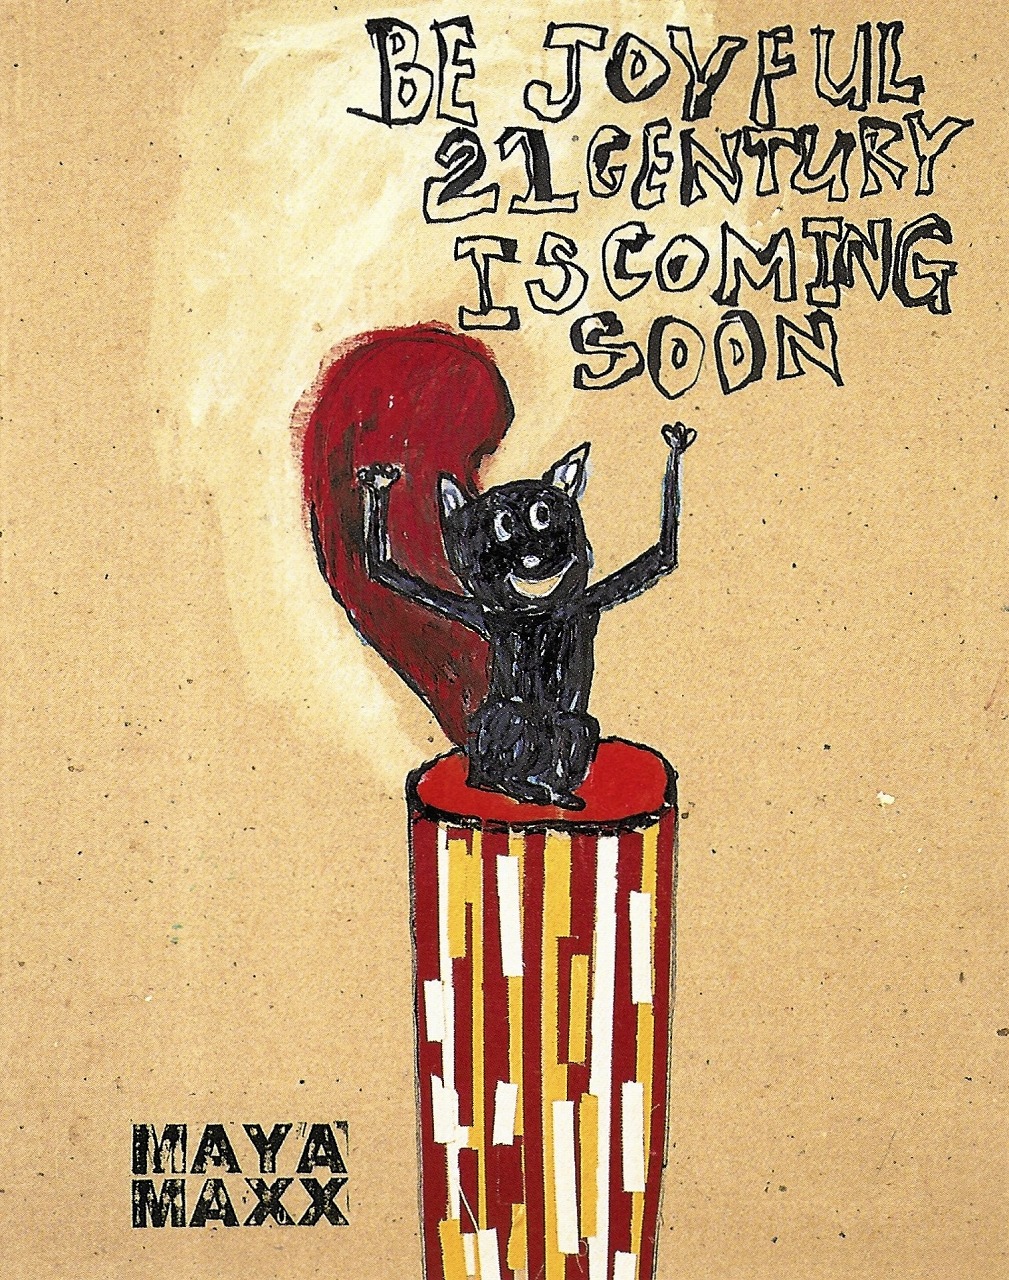 BE JOYFUL
21 CENTURY
IS COMING
SOON
MAYA
MAXX